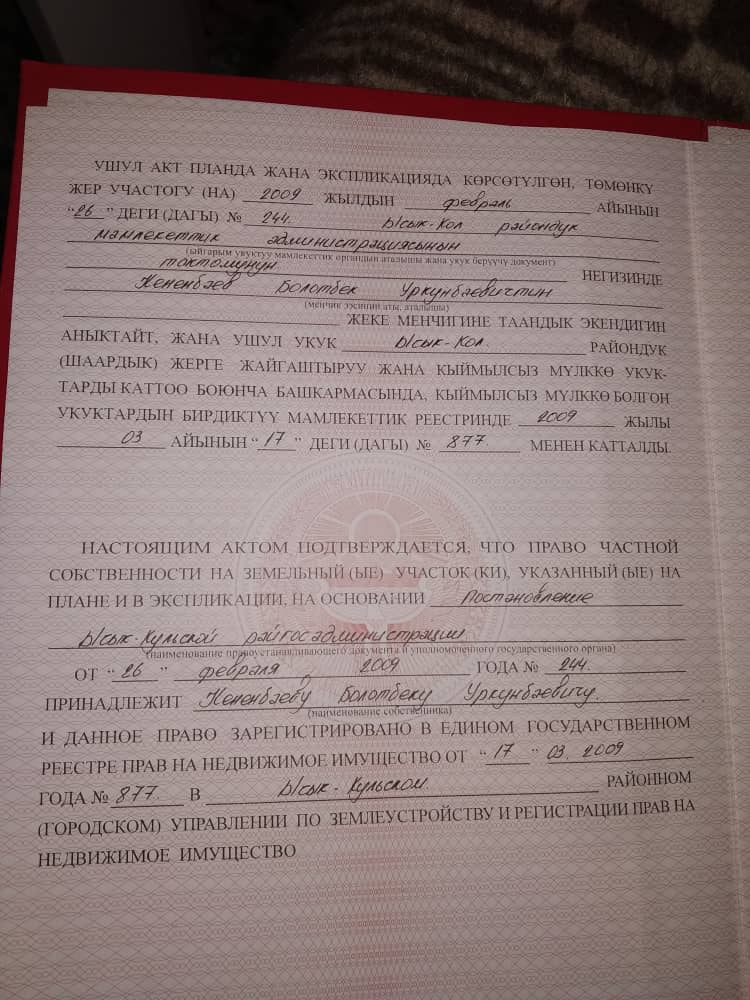 УШУЛ АКТ ПЛАНДА ЖАНА ЭКСПЛИКАЦИЯДА КӨРСӨТҮЛГӨН, ТӨМӨНКҮ
ЖЕР УЧАСТОГУ (НА) 2009 ЖЫЛДЫН февраль АЙЫНЫН
“26” ДЕГИ (ДАГЫ) № 244. Ысык-Кол райондук
мамлекеттик администрациясынын
(ыйгарым укуктуу мамлекеттик органдын аталышы жана укук берүүчү документ)
токтомунун НЕГИЗИНДЕ
Кененбаев Болотбек Уркунбаевичтин
(менчик ээсинин аты, аталышы)
ЖЕКЕ МЕНЧИГИНЕ ТААНДЫК ЭКЕНДИГИН
АНЫКТАЙТ, ЖАНА УШУЛ УКУК Ысык-Кол. РАЙОНДУК
(ШААРДЫК) ЖЕРГЕ ЖАЙГАШТЫРУУ ЖАНА КЫЙМЫЛСЫЗ МҮЛККӨ УКУК-
ТАРДЫ КАТТОО БОЮНЧА БАШКАРМАСЫНДА, КЫЙМЫЛСЫЗ МҮЛККӨ БОЛГОН
УКУКТАРДЫН БИРДИКТҮҮ МАМЛЕКЕТТИК РЕЕСТРИНДЕ 2009 ЖЫЛЫ
03 АЙЫНЫН “17” ДЕГИ (ДАГЫ) № 877. МЕНЕН КАТТАЛДЫ.
НАСТОЯЩИМ АКТОМ ПОДТВЕРЖДАЕТСЯ, ЧТО ПРАВО ЧАСТНОЙ
СОБСТВЕННОСТИ НА ЗЕМЕЛЬНЫЙ (ЫЕ) УЧАСТОК (КИ), УКАЗАННЫЙ (ЫЕ) НА
ПЛАНЕ И В ЭКСПЛИКАЦИИ, НА ОСНОВАНИИ Постановление
Ысык-Кульской райгосадминистрации
(наименование правоустанавливающего документа и уполномоченного государственного органа)
ОТ “26” февраля 2009 ГОДА № 244.
ПРИНАДЛЕЖИТ Кененбаеву Болотбеку Уркунбаевичу.
(наименование собственника)
И ДАННОЕ ПРАВО ЗАРЕГИСТРИРОВАНО В ЕДИНОМ ГОСУДАРСТВЕННОМ
РЕЕСТРЕ ПРАВ НА НЕДВИЖИМОЕ ИМУЩЕСТВО ОТ “17” 03. 2009
ГОДА № 877. В Ысык-Кульском РАЙОННОМ
(ГОРОДСКОМ) УПРАВЛЕНИИ ПО ЗЕМЛЕУСТРОЙСТВУ И РЕГИСТРАЦИИ ПРАВ НА
НЕДВИЖИМОЕ ИМУЩЕСТВО